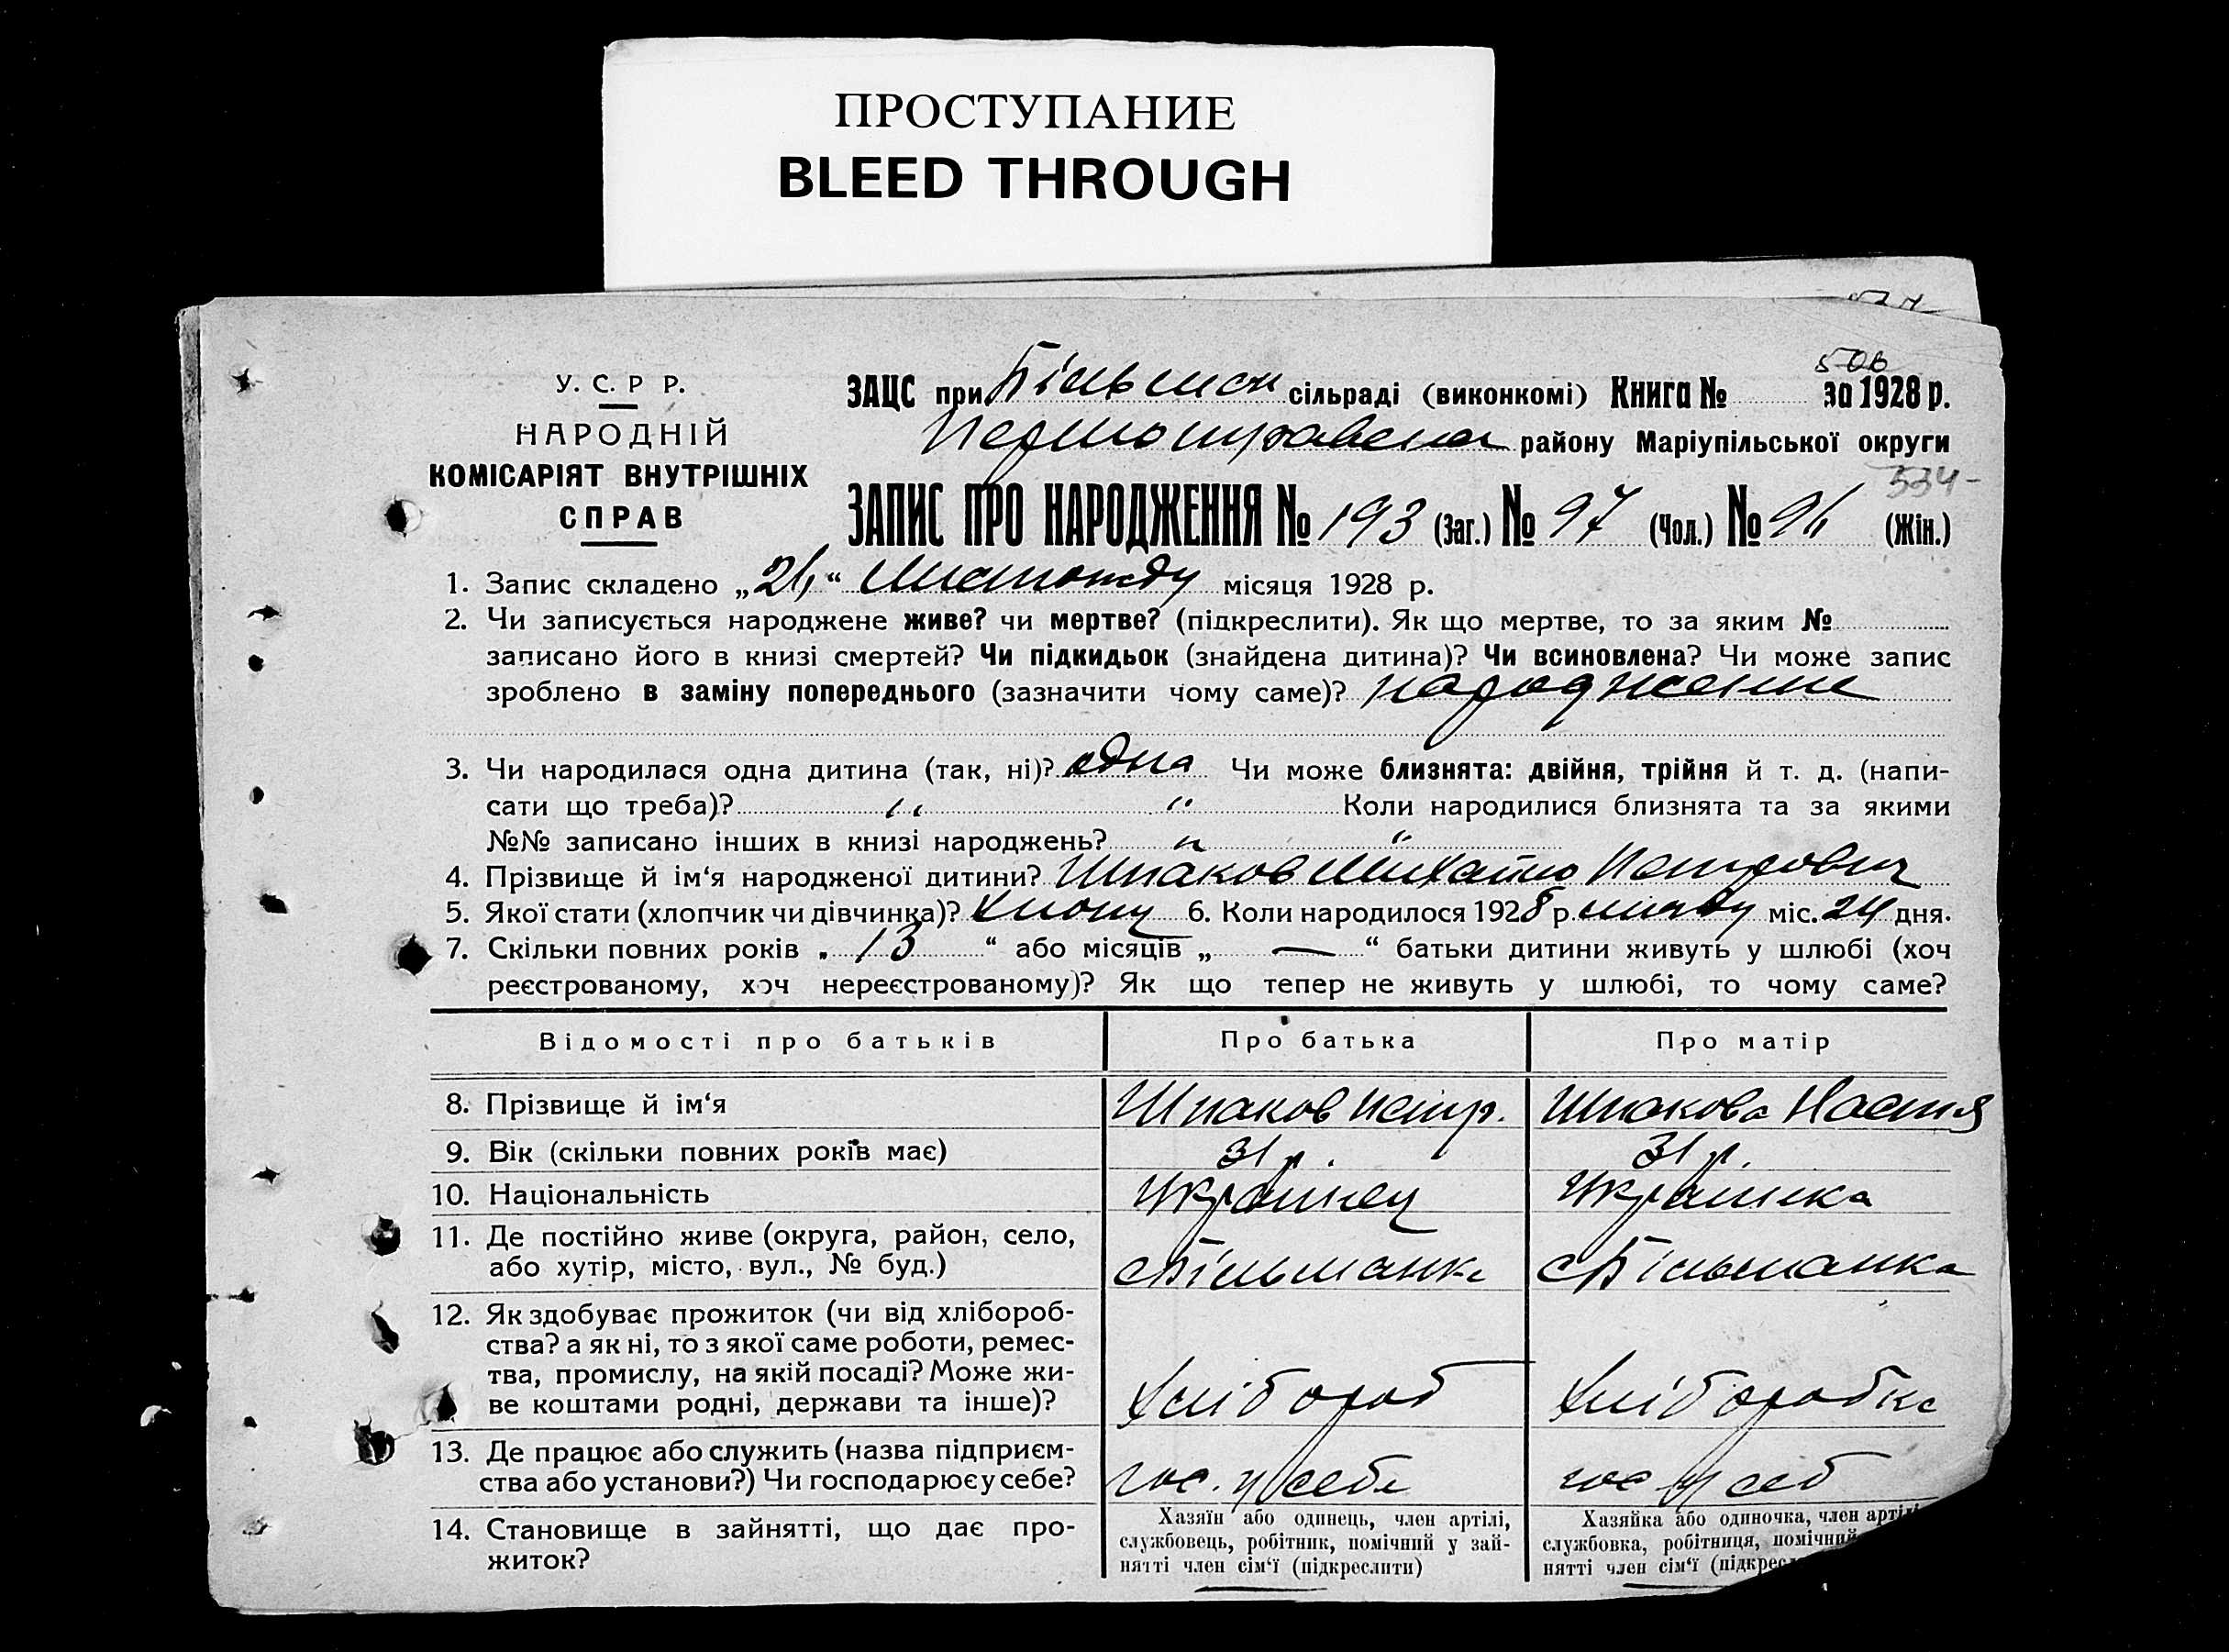 ПРОСТУПАНИЕ
BLEED THROUGH
У. С. Р Р.
НАРОДНІЙ
КОМІСАРІЯТ ВНУТРІШНІХ
СПРАВ
506
ЗАЦС при Більман сільраді (виконкомі) Книга № за 1928 р.
району Маріупільської округи
534-
ЗАПИС ПРО НАРОДЖЕННЯ № 193 (Заг.) № 97 (Чол.) № 96 (Жін.)
1. Запис складено „26“ Листопаду місяця 1928 р.
2. Чи записується народжене живе? чи мертве? (підкреслити). Як що мертве, то за яким №
записано його в книзі смертей? Чи підкидьок (знайдена дитина)? Чи всиновлена? Чи може запис
зроблено в заміну попереднього (зазначити чому саме)? народження
3. Чи народилася одна дитина (так, ні)? одна Чи може близнята: двійня, трійня й т. д. (напи-
сати що треба)? " " Коли народилися близнята та за якими
№№ записано інших в книзі народжень? " "
4. Прізвище й ім‘я народженої дитини? Шпаков Михайло Петрович
5. Якої стати (хлопчик чи дівчинка)? Хлопц 6. Коли народилося 1928 р. міс. 24 дня.
7. Скільки повних років „ 13 “ або місяців „ — “ батьки дитини живуть у шлюбі (хоч
реєстрованому, хоч нереєстрованому)? Як що тепер не живуть у шлюбі, то чому саме?
Відомості про батьків Про батька Про матір
8. Прізвище й ім‘я Шпаков Петр. Шпакова Настя
9. Вік (скільки повних років має) 31 р. 31 р.
10. Національність Українец Українка
11. Де постійно живе (округа, район, село,
або хутір, місто, вул., № буд.) с Більманка с Більманка
12. Як здобуває прожиток (чи від хлібороб-
ства? а як ні, то з якої саме роботи, ремес-
тва, промислу, на якій посаді? Може жи-
ве коштами родні, держави та інше)? Хлібороб Хліборобка
13. Де працює або служить (назва підприєм-
ства або установи?) Чи господарює у себе? гос. у себе гос у себ
14. Становище в зайнятті, що дає про-
житок?
Хазяїн або одинець, член артілі,
службовець, робітник, помічний у зай-
нятті член сім‘ї (підкреслити)
Хазяйка або одиночка, член арті
службовка, робітниця, помічний
нятті член сім‘ї (підкресл